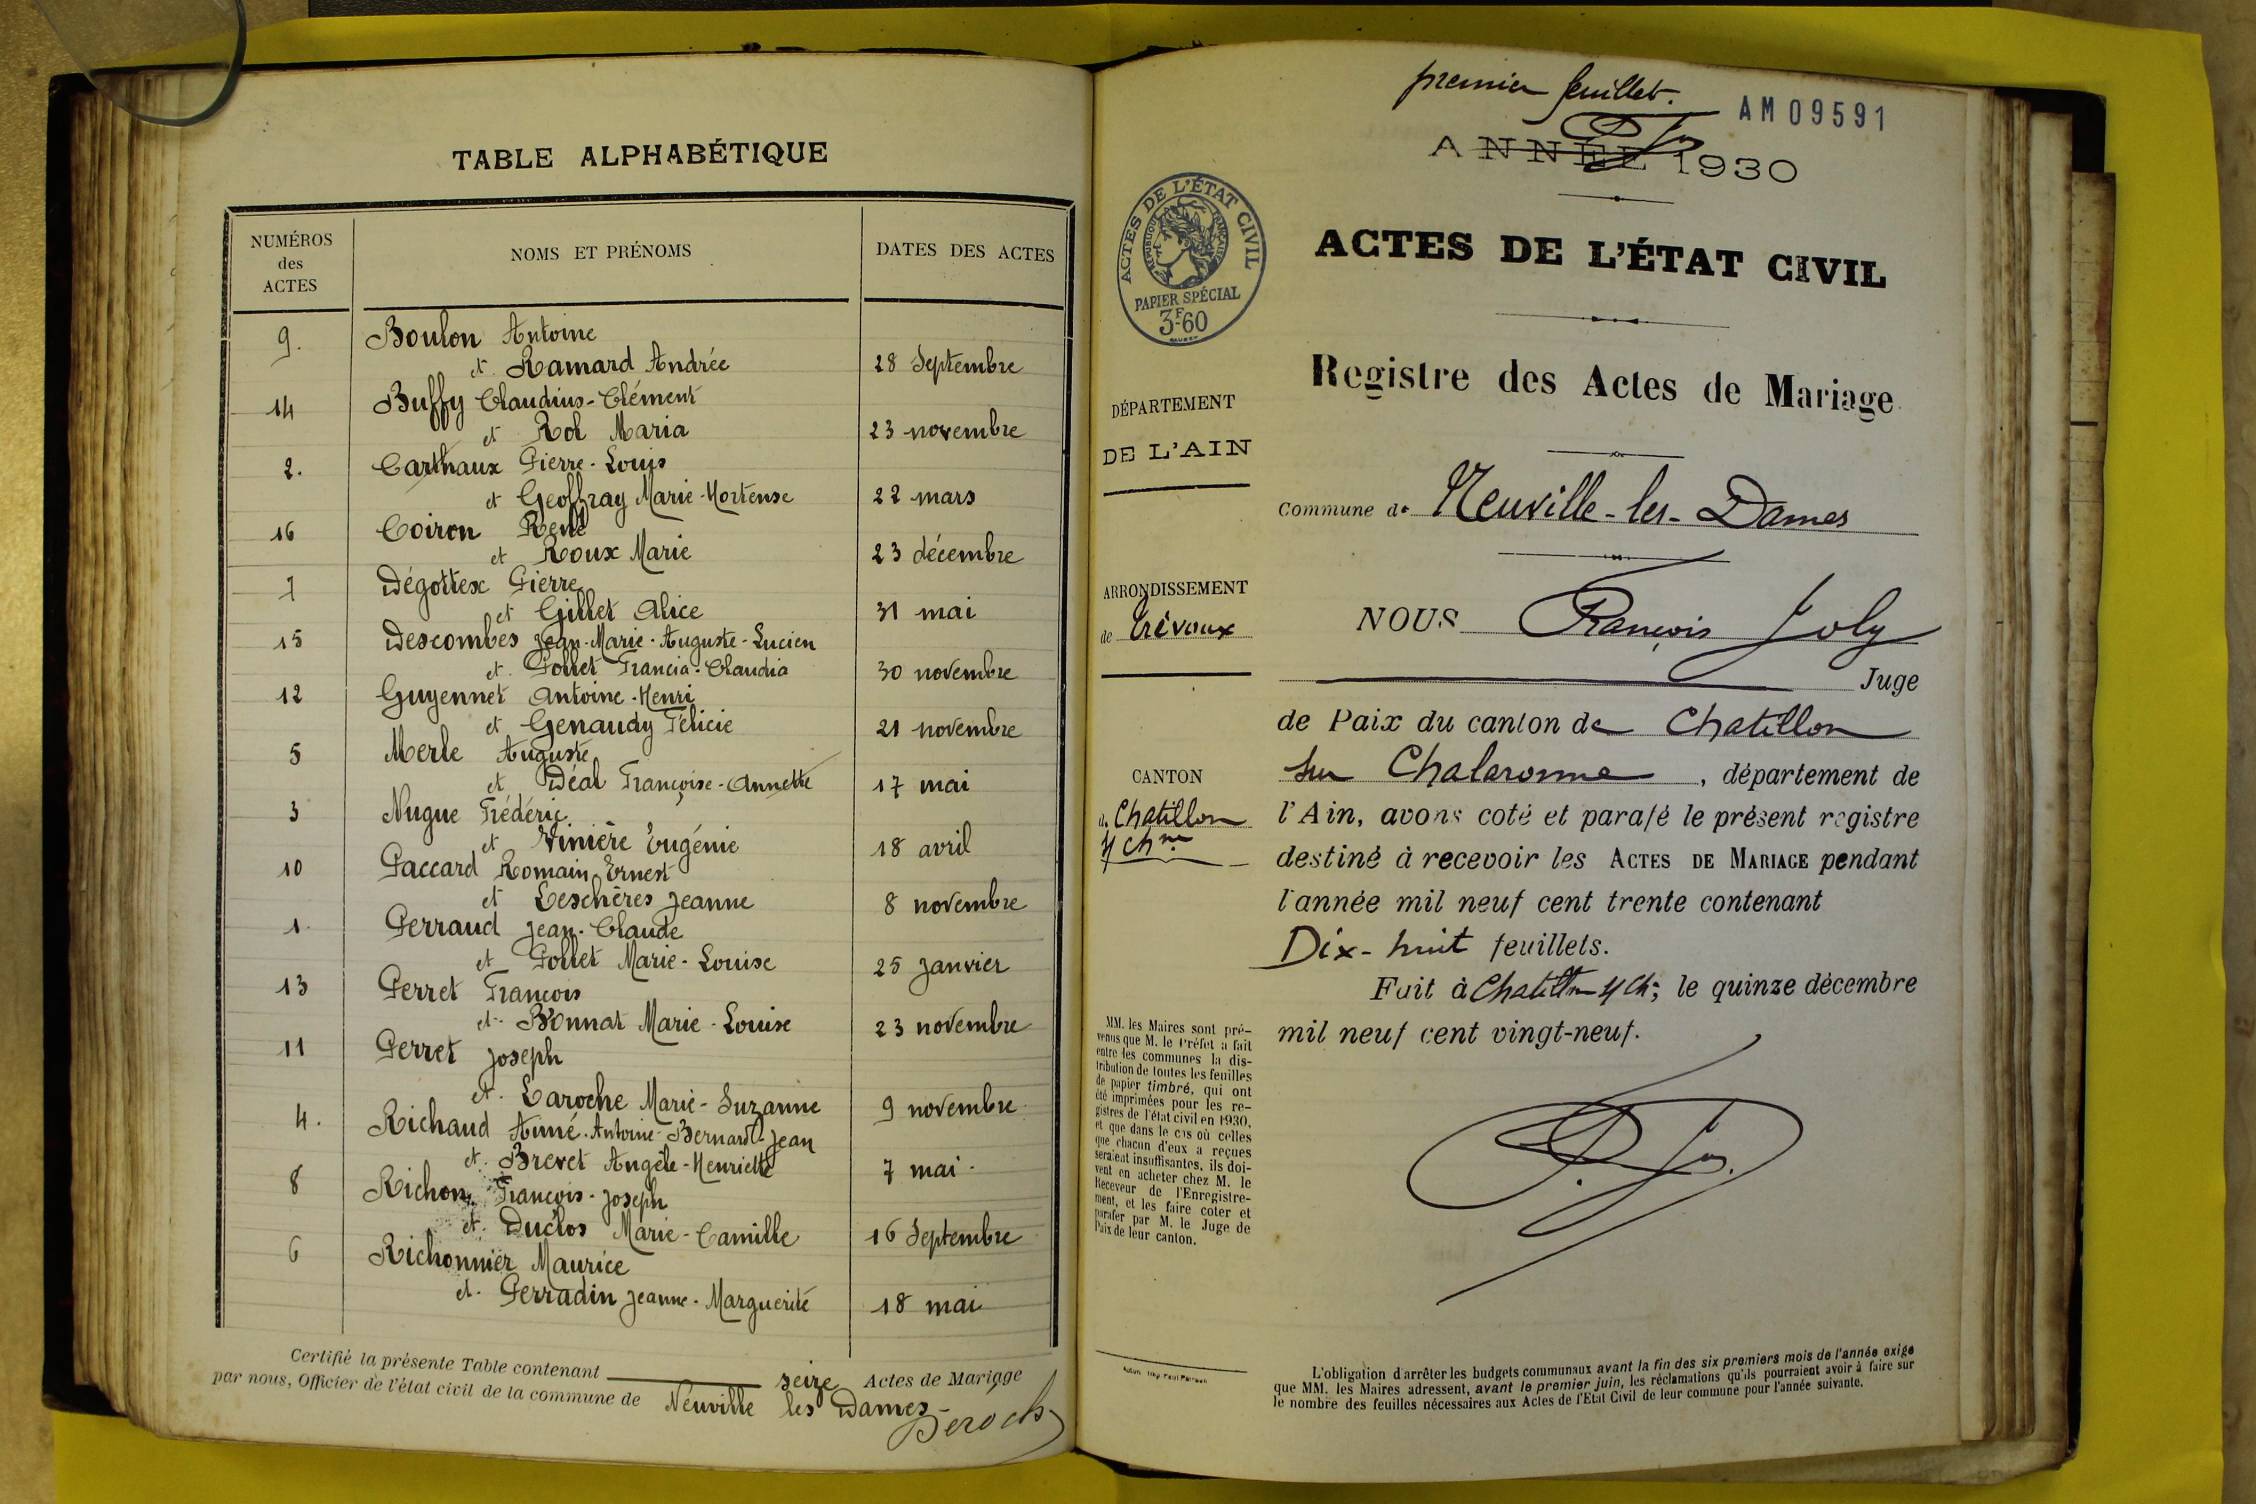 TABLE ALPHABÉTIQUE
NUMÉROS des ACTES
NOMS ET PRÉNOMS
DATES DES ACTES
9. Boulon Antoine
et Ramard Andrée 28 Septembre
14 Buffy Claudius-Clément
et Rol Maria 23 novembre
2. Carthaux Pierre-Louis
et Geoffray Marie-Hortense 22 mars
16 Coiron René
et Roux Marie 23 décembre
7 Dégottex Pierre
et Gillet Alice 31 mai
15 Descombes Jean-Marie-Auguste-Lucien
et Pollet Francia-Claudia 30 novembre
12 Guyennet Antoine-Henri
et Genaudy Félicie 21 novembre
5 Merle Auguste
et Déal Françoise-Annette 17 mai
3 Nugue Frédéric
et Vinière Eugénie 18 avril
10 Paccard Romain Ernest
et Leschères Jeanne 8 novembre
1. Perraud Jean-Claude
et Pollet Marie-Louise 25 Janvier
13 Perret François
et Bonnat Marie-Louise 23 novembre
11 Perret Joseph
et Laroche Marie-Suzanne 9 novembre
4. Richaud Aimé-Antoine-Bernard-Jean
et Brevet Angèle-Henriette 7 mai
8 Richon François-Joseph
et Duclos Marie-Camille 16 Septembre
6 Richonnier Maurice
et Perradin Jeanne-Marguerite 18 mai
Certifié la présente Table contenant seize Actes de Mariage
par nous, Officier de l'état civil de la commune de Neuville les Dames
premier feuillet.
AM 09591
ANNÉE 1930
ACTES DE L'ÉTAT CIVIL
RÉPUBLIQUE FRANÇAISE
PAPIER SPÉCIAL
3F60
ACTES DE L'ÉTAT CIVIL
Registre des Actes de Mariage
DÉPARTEMENT
DE L'AIN
Commune de Neuville-les-Dames
ARRONDISSEMENT
de Trévoux
NOUS François Joly
Juge
de Paix du canton de Chatillon
sur Chalaronne, département de
l'Ain, avons coté et parafé le présent registre
destiné à recevoir les ACTES DE MARIAGE pendant
l'année mil neuf cent trente contenant
Dix-huit feuillets.
Fait à Chatillon s/ Ch; le quinze décembre
mil neuf cent vingt-neuf.
CANTON
de Chatillon
s/ Chne
MM. les Maires sont pré-
venus que M. le Préfet a fait
entre les communes la dis-
tribution de toutes les feuilles
de papier timbré, qui ont
été imprimées pour les re-
gistres de l'état civil en 1930,
et que dans le cas où celles
que chacun d'eux a reçues
seraient insuffisantes, ils doi-
vent en acheter chez M. le
Receveur de l'Enregistre-
ment, et les faire coter et
parafer par M. le Juge de
Paix de leur canton.
L'obligation d'arrêter les budgets communaux avant la fin des six premiers mois de l'année exige
que MM. les Maires adressent, avant le premier juin, les réclamations qu'ils pourraient avoir à faire sur
le nombre des feuilles nécessaires aux Actes de l'État Civil de leur commune pour l'année suivante.